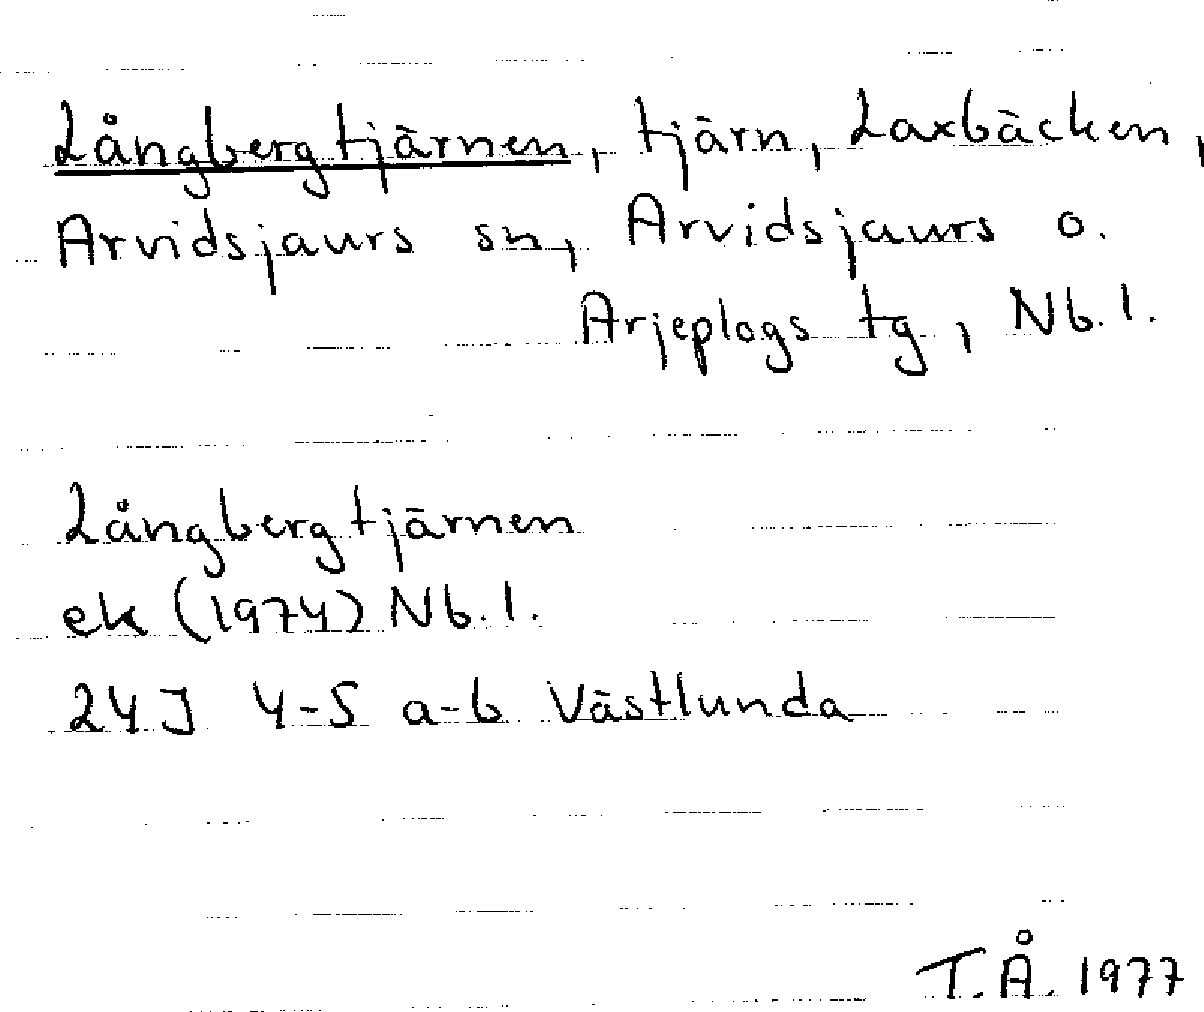 Långbergtjärnen, tjärn, Laxbäcken,
Arvidsjaurs sn, Arvidsjaurs o.
Arjeplogs tg, Nb. l.
Långbergtjärnen
ek (1974) Nb. l.
24J 4-5 a-b Västlunda
T.Å. 1977